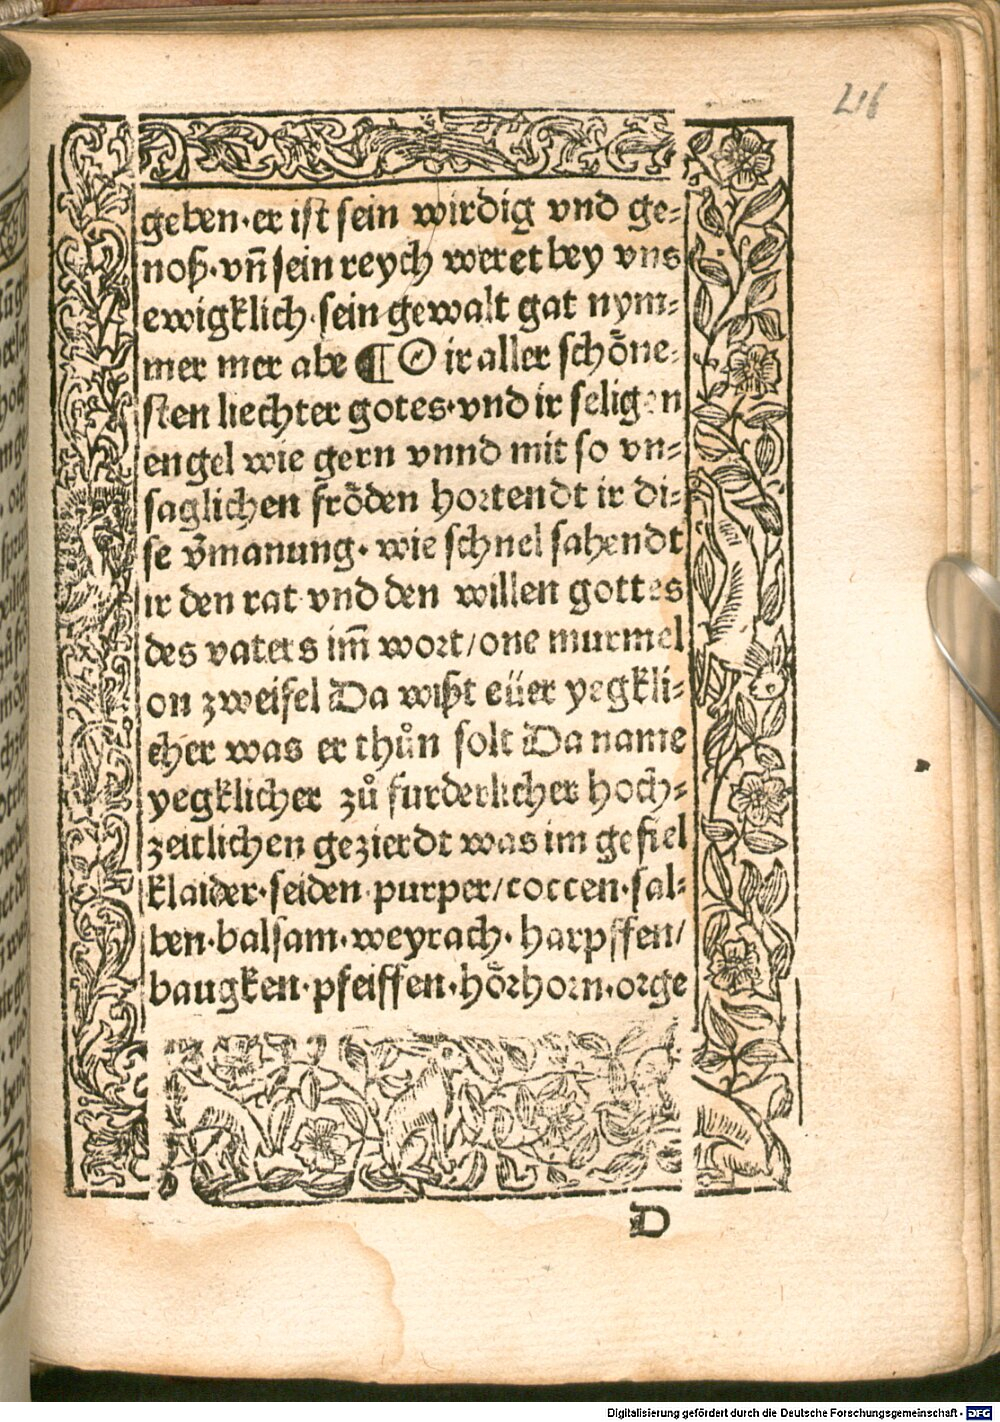 216
geben·er ist sein wirdig vnd ge⸗
noß·vn̄ sein reych weret bey vns
ewigklich·sein gewalt gat nym⸗
mer mer abe ¶ O ir aller schoͤne⸗
sten liechter gotes·vnd ir seligen
engel wie gern vnnd mit so vn⸗
saglichen froͤden hortendt ir di⸗
se v̄manung·wie schnel sahendt
ir den rat vnd den willen gottes
des vaters im̄ wort/one murmel
on zweifel Da wißt eüer yegkli⸗
cher was er thuͦn solt Da name
yegklicher zuͦ furderlicher hoch⸗
zeitlichen gezierdt was im gefiel
klaider·seiden purper/coccen·sal⸗
ben·balsam·weyrach·harpffen/
baugken·pfeiffen·hoͤrhorn·orge
D
Digitalisierung gefördert durch die Deutsche Forschungsgemeinschaft - DFG